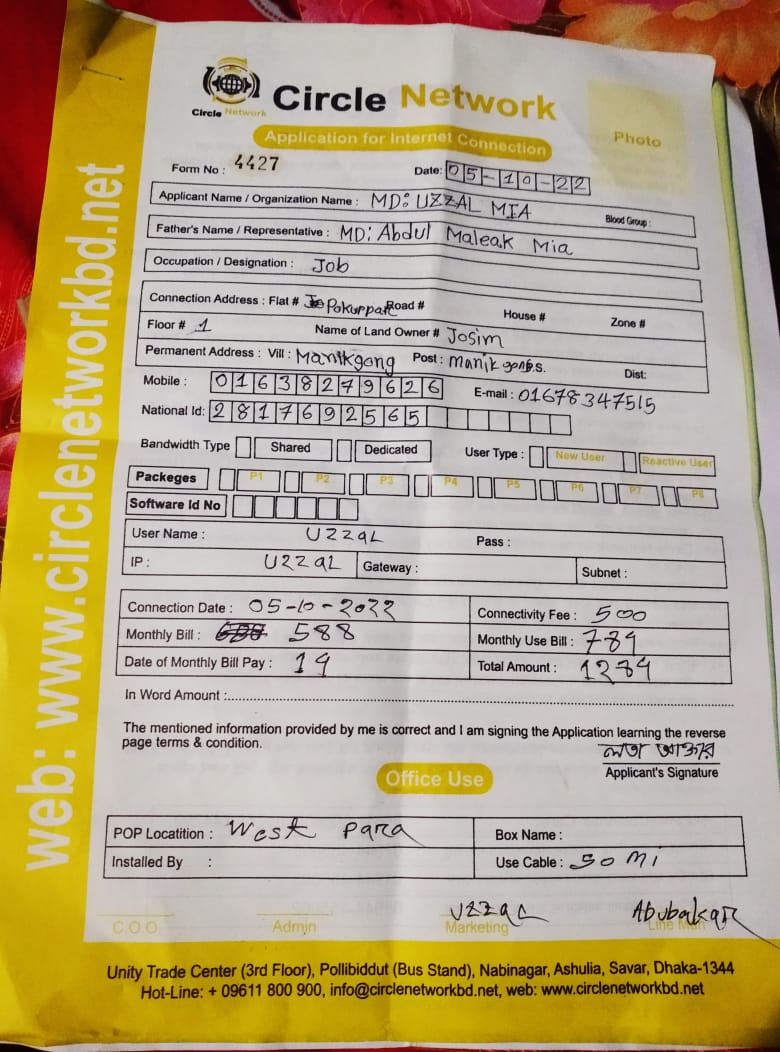 Circle Network
Circle Network
Application for Internet Connection
Photo
web: www.circlenetworkbd.net
Form No : 4427
Date: 05-10-22
Applicant Name / Organization Name : MD: UZZAL MIA Blood Group :
Father's Name / Representative : MD: Abdul Maleak Mia
Occupation / Designation : Job
Connection Address : Flat # Pokurpar Road # House # Zone #
Floor # 1 Name of Land Owner # Josim
Permanent Address : Vill : Manikgong Post : manik gong P.S. Dist:
Mobile : 01638279626 E-mail : 01678347515
National Id: 2817692565
Bandwidth Type Shared Dedicated User Type : New User Reactive User
Packeges P1 P2 P3 P4 P5 P6 P7 P8
Software Id No
User Name : UZZAL Pass :
IP : UZZAL Gateway : Subnet :
Connection Date : 05-10-2022 Connectivity Fee : 500
Monthly Bill : 588 Monthly Use Bill : 789
Date of Monthly Bill Pay : 19 Total Amount : 1289
In Word Amount :
The mentioned information provided by me is correct and I am signing the Application learning the reverse
page terms & condition.
লতা আক্তার
Applicant's Signature
Office Use
POP Locatition : West para Box Name :
Installed By : Use Cable : 50 Mi
Uzzal Abubakar
C.O.O Admin Marketing Line Man
Unity Trade Center (3rd Floor), Pollibiddut (Bus Stand), Nabinagar, Ashulia, Savar, Dhaka-1344
Hot-Line: + 09611 800 900, info@circlenetworkbd.net, web: www.circlenetworkbd.net